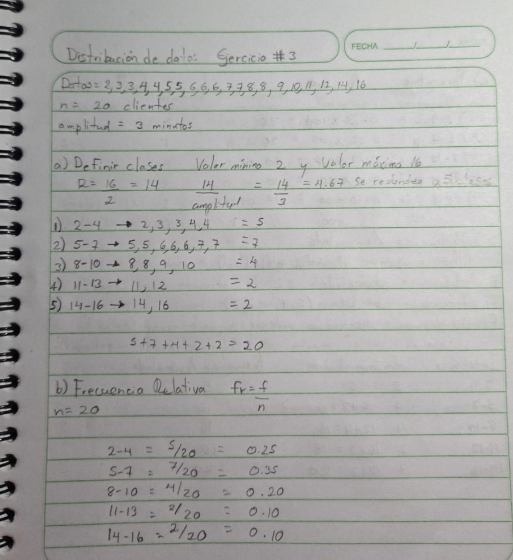 Distribución de datos: Ejercicio #3
FECHA __/__/__
Datos= 2,3,3,4,4,5,5,6,6,6,7,7,8,8,9,10,11,12,14,16
n= 20 clientes
amplitud = 3 minutos
a) Definir clases Valor mínimo 2 y Valor máximo 16
R= 16/2 = 14 14/amplitud = 14/3 = 4.67 Se redondea a 5
1) 2-4 → 2,3,3,4,4 = 5
2) 5-7 → 5,5,6,6,6,7,7 = 7
3) 8-10 → 8,8,9,10 = 4
4) 11-13 → 11,12 = 2
5) 14-16 → 14,16 = 2
5+7+4+2+2=20
b) Frecuencia Relativa fr= f/n
n= 20
2-4 = 5/20 = 0.25
5-7 = 7/20 = 0.35
8-10 = 4/20 = 0.20
11-13 = 2/20 = 0.10
14-16 = 2/20 = 0.10